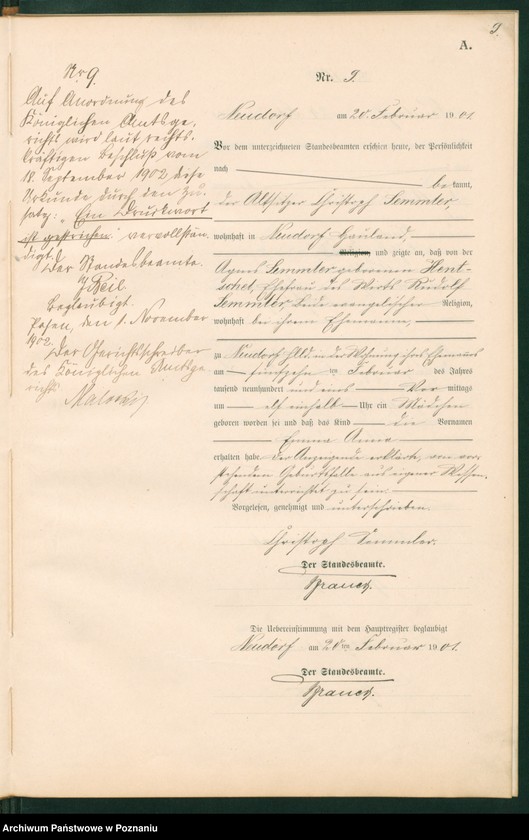 9.
A.
Nr. 9.
Neudorf am 20. Februar 1901.
Vor dem unterzeichneten Standesbeamten erschien heute, der Persönlichkeit
nach
bekannt,
der Altsitzer Christoph Semmler,
wohnhaft in Neudorf Hauland,
Religion, und zeigte an, daß von der
Agnes Semmler geborenen Hent-
schel, Ehefrau des Wirts Rudolf
Semmler, beide evangelischer Religion,
wohnhaft bei ihrem Ehemann,
zu Neudorf Hld. in der Wohnung ihres Ehemanns
am fünfzehnten Februar des Jahres
tausend neunhundert und eins Vormittags
um elf einhalb Uhr ein Mädchen
geboren worden sei und daß das Kind die Vornamen
Emma Anna
erhalten habe. Der Anzeigende erklärte, von vor-
stehendem Geburtsfalle aus eigener Wissen-
schaft unterrichtet zu sein.
Vorgelesen, genehmigt und unterschrieben
Christoph Semmler.
Der Standesbeamte.
Die Uebereinstimmung mit dem Hauptregister beglaubigt
Neudorf am 20ten Februar 1901.
Der Standesbeamte.
Nr 9.
Auf Anordnung des
Königlichen Amtsge-
richts wird laut rechts-
kräftigen Beschluß vom
18. September 1902 diese
Urkunde durch den Zu-
satz: "Ein Druckwort
ist gestrichen" vervollstän-
digt.
Der Standesbeamte.
Beglaubigt.
Posen, den 1. November
1902.
Der Gerichtsschreiber
des Königlichen Amtsge-
richts
Archiwum Państwowe w Poznaniu